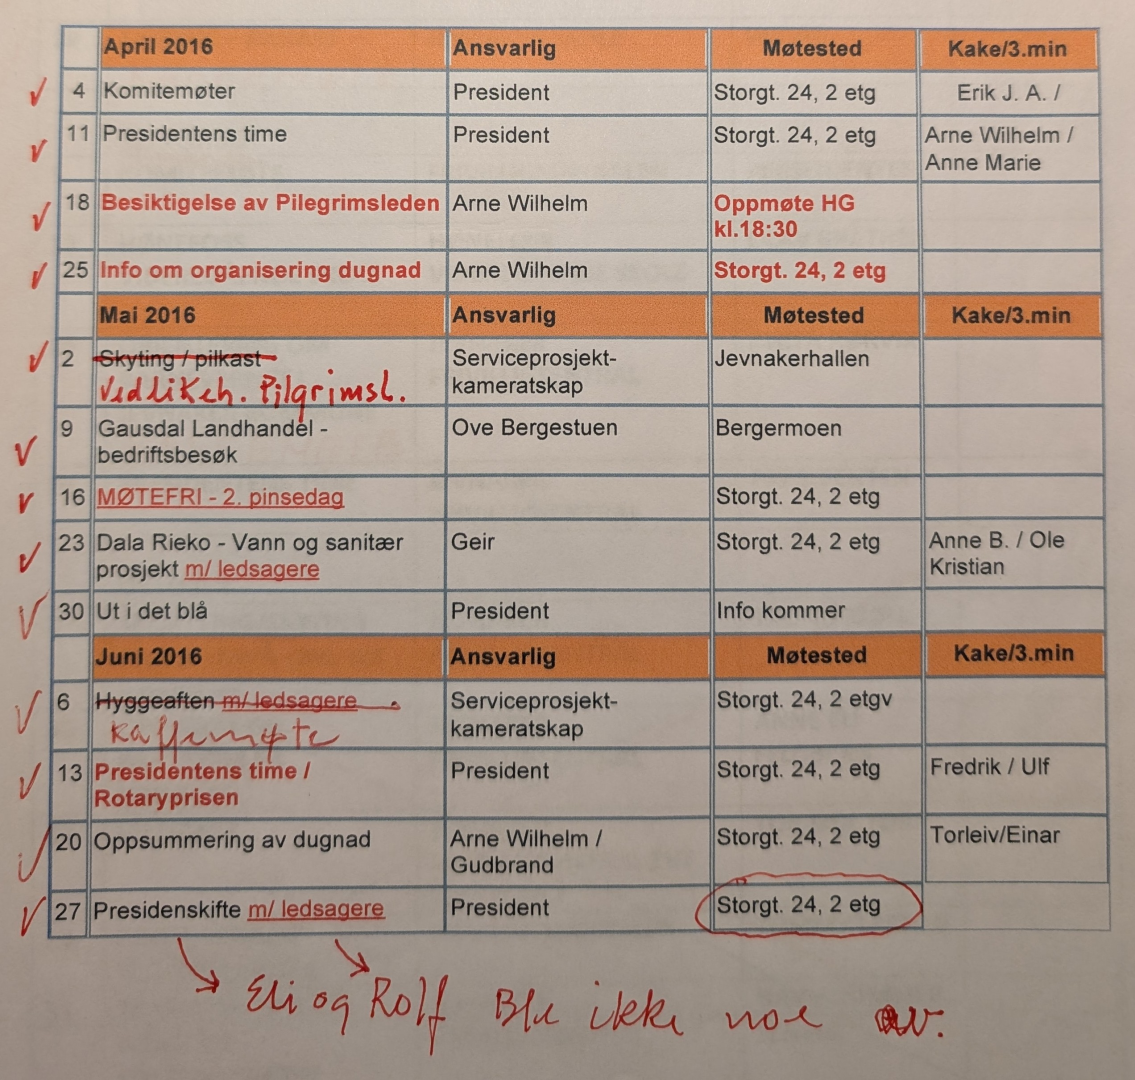 April 2016 Ansvarlig Møtested Kake/3.min
4 Komitemøter President Storgt. 24, 2 etg Erik J. A. /
11 Presidentens time President Storgt. 24, 2 etg Arne Wilhelm /
Anne Marie
18 Besiktigelse av Pilegrimsleden Arne Wilhelm Oppmøte HG
kl.18:30
25 Info om organisering dugnad Arne Wilhelm Storgt. 24, 2 etg
Mai 2016 Ansvarlig Møtested Kake/3.min
2 Skyting / pilkast Serviceprosjekt- Jevnakerhallen
Vedlikeh. Pilgrimsl. kameratskap
9 Gausdal Landhandel - Ove Bergestuen Bergermoen
bedriftsbesøk
16 MØTEFRI - 2. pinsedag Storgt. 24, 2 etg
23 Dala Rieko - Vann og sanitær Geir Storgt. 24, 2 etg Anne B. / Ole
prosjekt m/ ledsagere Kristian
30 Ut i det blå President Info kommer
Juni 2016 Ansvarlig Møtested Kake/3.min
6 Hyggeaften m/ ledsagere Serviceprosjekt- Storgt. 24, 2 etgv
Kaffemøte kameratskap
13 Presidentens time / President Storgt. 24, 2 etg Fredrik / Ulf
Rotaryprisen
20 Oppsummering av dugnad Arne Wilhelm / Storgt. 24, 2 etg Torleiv/Einar
Gudbrand
27 Presidenskifte m/ ledsagere President Storgt. 24, 2 etg
Eli og Rolf Ble ikke noe av.